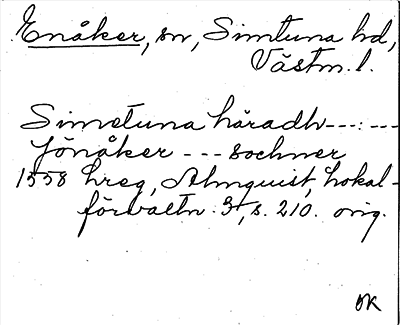 Enåker, sn, Simtuna hd,
Västm. l.
Simetuna häradh ---:---
Jönåker --- sochner
1558 hreg, Almquist, Lokal-
förvaltn. 3, s. 210. orig.
DK